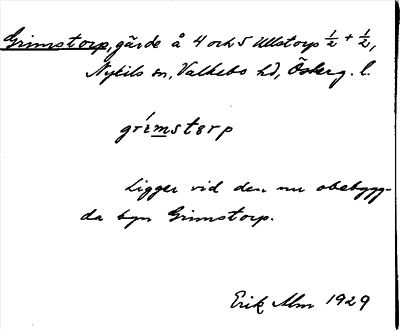 Grimstorp, gärde å 4 och 5 Ullstorp ½ + ½,
Nykils sn, Valkebo hd, Österg. l.
grímstɵrp
Ligger vid den nu obebygg-
da byn Grimstorp.
Erik Alm 1929